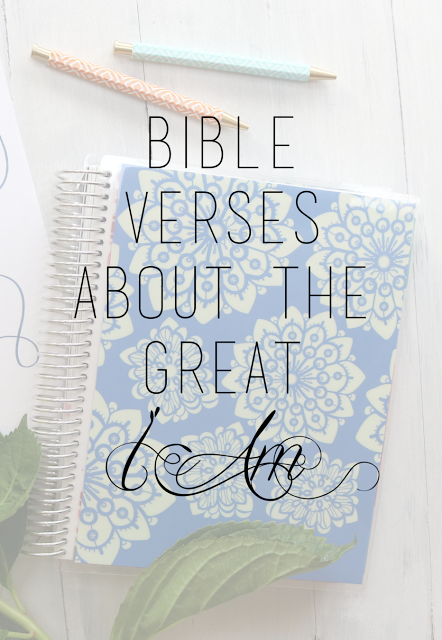 BIBLE
VERSES
ABOUT THE
GREAT
I Am